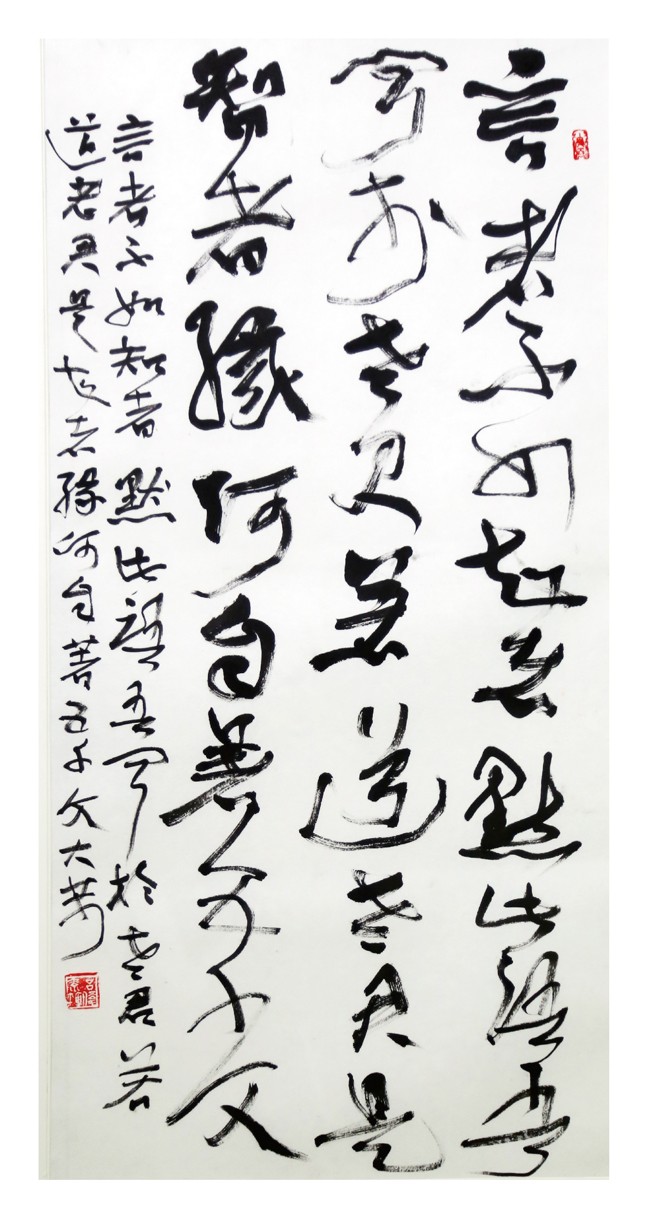 言者不如知者默此語吾
聞於老君若道老君是
智者緣何自著五千文
言者不如知者默此語吾聞於老君若
道老君是知者緣何自著五千文